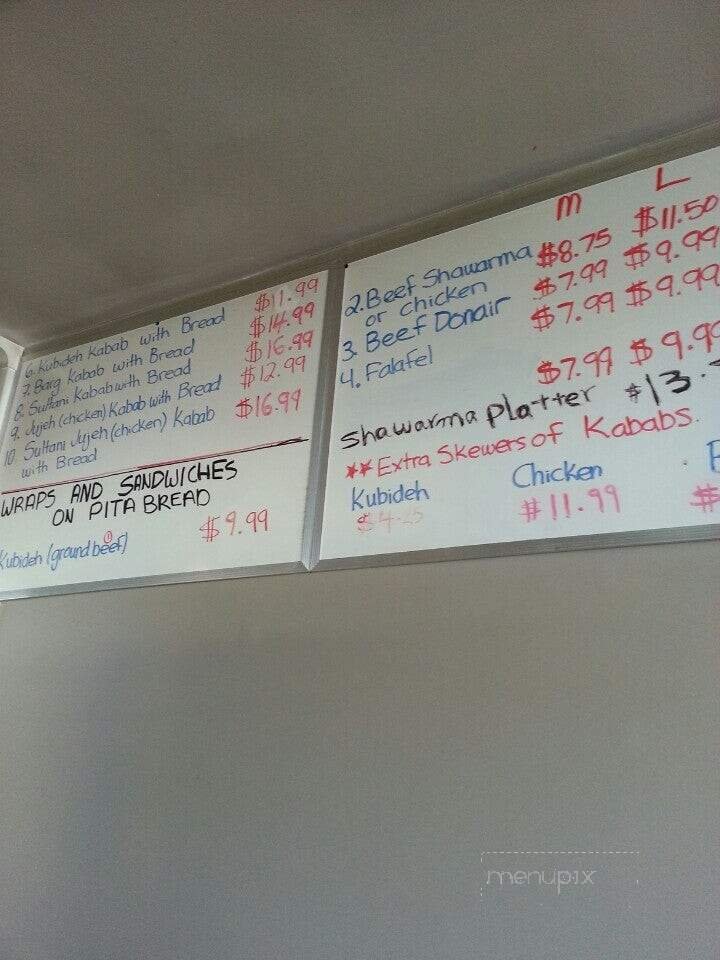 6. Kubideh Kabab with Bread $11.99
7. Barg Kabab with Bread $14.99
8. Sultani Kabab with Bread $16.99
9. Jujeh (chicken) Kabab with Bread $12.99
10 Sultani Jujeh (chicken) Kabab $16.99
with Bread
WRAPS AND SANDWICHES
ON PITA BREAD
Kubideh (ground beef) $9.99
M L
2. Beef Shawarma $8.75 $11.50
or chicken $7.99 $9.99
3. Beef Donair $7.99 $9.99
4. Falafel $7.99 $9.99
Shawarma platter $13.
**Extra Skewers of Kababs.
Kubideh Chicken
$4.25 $11.99 $
menupix